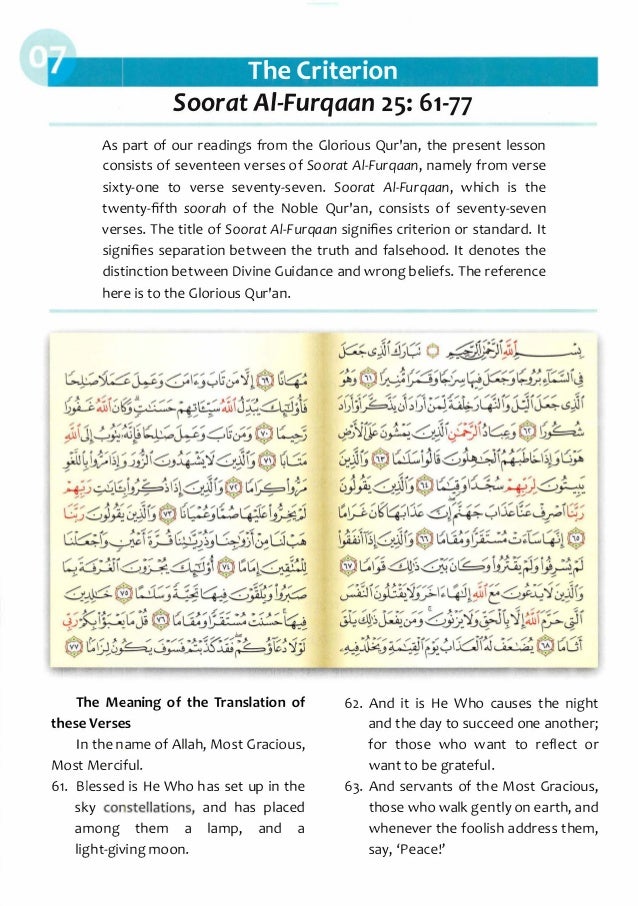 07
The Criterion
Soorat Al-Furqaan 25: 61-77
As part of our readings from the Glorious Qur'an, the present lesson
consists of seventeen verses of Soorat Al-Furqaan, namely from verse
sixty-one to verse seventy-seven. Soorat Al-Furqaan, which is the
twenty-fifth soorah of the Noble Qur'an, consists of seventy-seven
verses. The title of Soorat Al-Furqaan signifies criterion or standard. It
signifies separation between the truth and falsehood. It denotes the
distinction between Divine Guidance and wrong beliefs. The reference
here is to the Glorious Qur'an.
بِسْمِ ٱللَّهِ ٱلرَّحْمَٰنِ ٱلرَّحِيمِ تَبَارَكَ ٱلَّذِى جَعَلَ
فِى ٱلسَّمَآءِ بُرُوجًا وَجَعَلَ فِيهَا سِرَٰجًا وَقَمَرًا مُّنِيرًا ٦١ وَهُوَ
ٱلَّذِى جَعَلَ ٱلَّيْلَ وَٱلنَّهَارَ خِلْفَةً لِّمَنْ أَرَادَ أَن يَذَّكَّرَ أَوْ أَرَادَ
شُكُورًا ٦٢ وَعِبَادُ ٱلرَّحْمَٰنِ ٱلَّذِينَ يَمْشُونَ عَلَى ٱلْأَرْضِ
هَوْنًا وَإِذَا خَاطَبَهُمُ ٱلْجَٰهِلُونَ قَالُوا۟ سَلَٰمًا ٦٣ وَٱلَّذِينَ
يَبِيتُونَ لِرَبِّهِمْ سُجَّدًا وَقِيَٰمًا ٦٤ وَٱلَّذِينَ يَقُولُونَ
رَبَّنَا ٱصْرِفْ عَنَّا عَذَابَ جَهَنَّمَ إِنَّ عَذَابَهَا كَانَ غَرَامًا
٦٥ إِنَّهَا سَآءَتْ مُسْتَقَرًّا وَمُقَامًا ٦٦ وَٱلَّذِينَ إِذَآ أَنفَقُوا۟
لَمْ يُسْرِفُوا۟ وَلَمْ يَقْتُرُوا۟ وَكَانَ بَيْنَ ذَٰلِكَ قَوَامًا ٦٧
وَٱلَّذِينَ لَا يَدْعُونَ مَعَ ٱللَّهِ إِلَٰهًا ءَاخَرَ وَلَا يَقْتُلُونَ ٱلنَّفْسَ
ٱلَّتِى حَرَّمَ ٱللَّهُ إِلَّا بِٱلْحَقِّ وَلَا يَزْنُونَ وَمَن يَفْعَلْ ذَٰلِكَ يَلْقَ
أَثَامًا ٦٨ يُضَٰعَفْ لَهُ ٱلْعَذَابُ يَوْمَ ٱلْقِيَٰمَةِ وَيَخْلُدْ فِيهِۦ
مُهَانًا ٦٩ إِلَّا مَن تَابَ وَءَامَنَ وَعَمِلَ عَمَلًا صَٰلِحًا
فَأُو۟لَٰٓئِكَ يُبَدِّلُ ٱللَّهُ سَيِّـَٔاتِهِمْ حَسَنَٰتٍ وَكَانَ ٱللَّهُ غَفُورًا
رَّحِيمًا ٧٠ وَمَن تَابَ وَعَمِلَ صَٰلِحًا فَإِنَّهُۥ يَتُوبُ إِلَى ٱللَّهِ
مَتَابًا ٧١ وَٱلَّذِينَ لَا يَشْهَدُونَ ٱلزُّورَ وَإِذَا مَرُّوا۟ بِٱللَّغْوِ
مَرُّوا۟ كِرَامًا ٧٢ وَٱلَّذِينَ إِذَا ذُكِّرُوا۟ بِـَٔايَٰتِ رَبِّهِمْ
لَمْ يَخِرُّوا۟ عَلَيْهَا صُمًّا وَعُمْيَانًا ٧٣ وَٱلَّذِينَ يَقُولُونَ رَبَّنَا
هَبْ لَنَا مِنْ أَزْوَٰجِنَا وَذُرِّيَّٰتِنَا قُرَّةَ أَعْيُنٍ وَٱجْعَلْنَا
لِلْمُتَّقِينَ إِمَامًا ٧٤ أُو۟لَٰٓئِكَ يُجْزَوْنَ ٱلْغُرْفَةَ بِمَا
صَبَرُوا۟ وَيُلَقَّوْنَ فِيهَا تَحِيَّةً وَسَلَٰمًا ٧٥ خَٰلِدِينَ
فِيهَا حَسُنَتْ مُسْتَقَرًّا وَمُقَامًا ٧٦ قُلْ مَا يَعْبَؤُا۟ بِكُمْ رَبِّى
لَوْلَا دُعَآؤُكُمْ فَقَدْ كَذَّبْتُمْ فَسَوْفَ يَكُونُ لِزَامًا ٧٧
The Meaning of the Translation of
these Verses
In the name of Allah, Most Gracious,
Most Merciful.
61. Blessed is He Who has set up in the
sky constellations, and has placed
among them a lamp, and a
light-giving moon.
62. And it is He Who causes the night
and the day to succeed one another;
for those who want to reflect or
want to be grateful.
63. And servants of the Most Gracious,
those who walk gently on earth, and
whenever the foolish address them,
say, ‘Peace!’